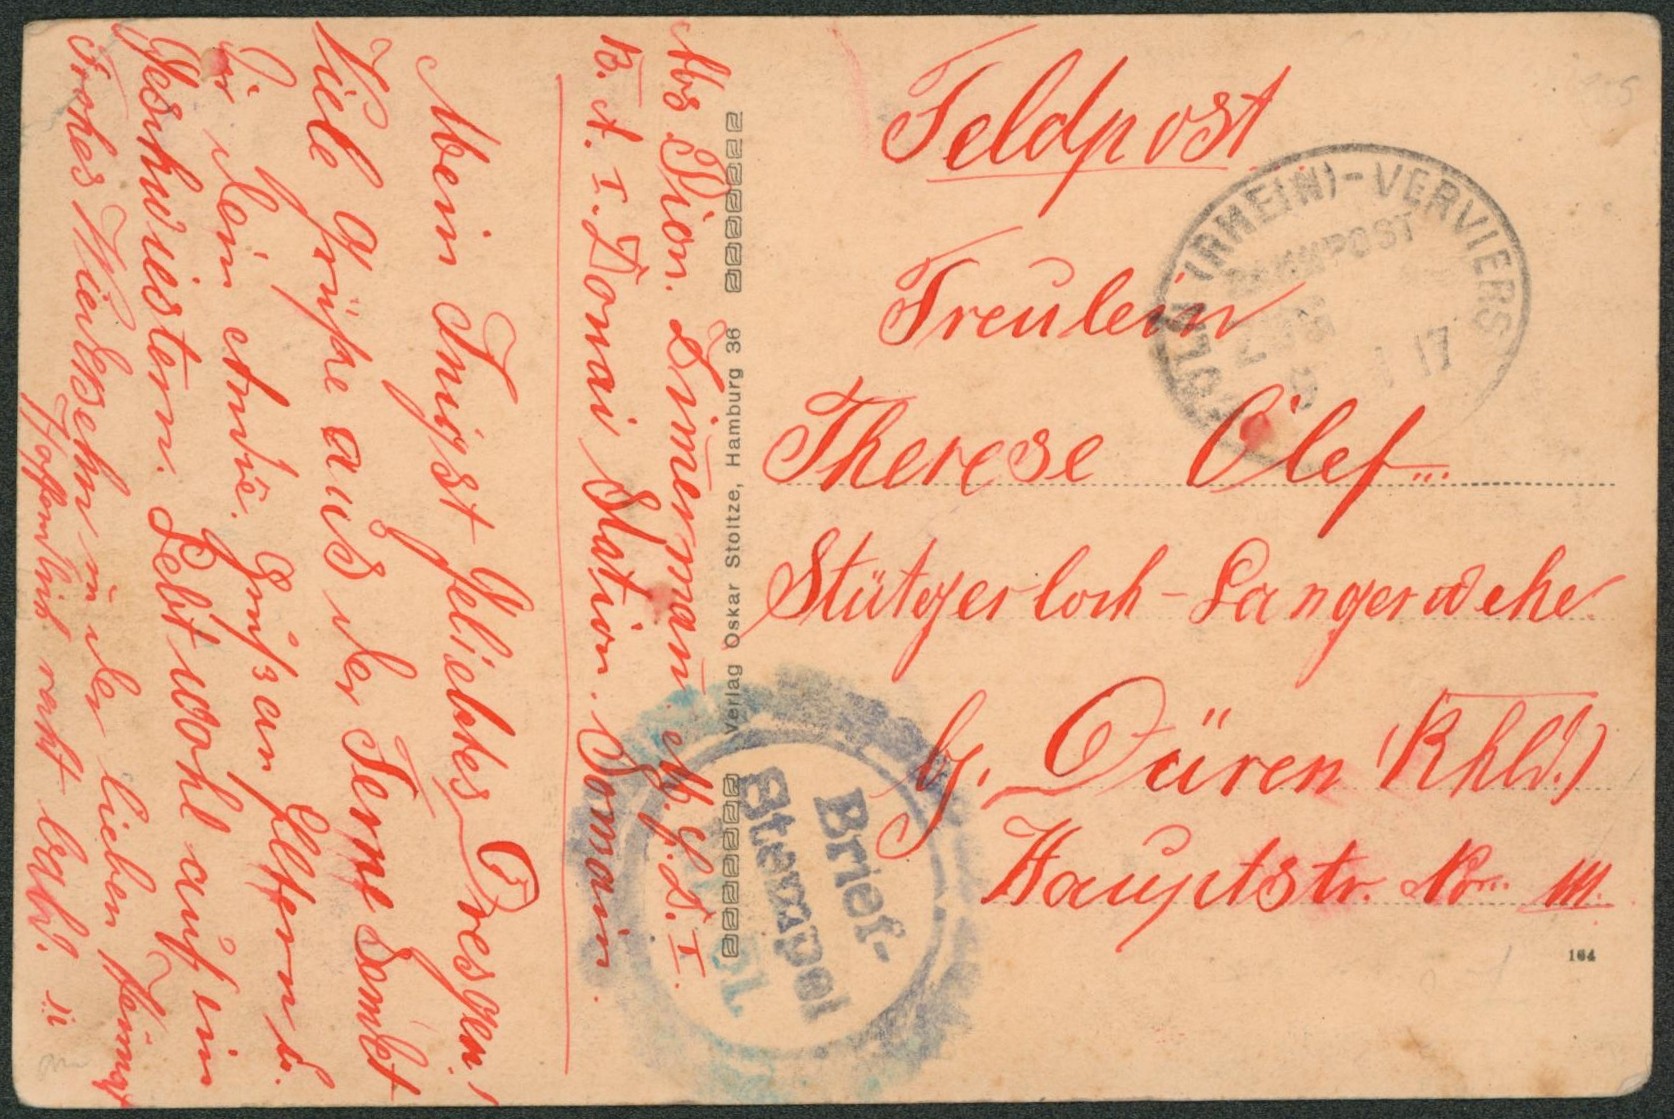 Feldpost
Freulein
Therese Olef
Stütgerloch-Langerwehe
bj. Düren (Rhld.)
Hauptstr. No. 111.
CÖLN (RHEIN)-VERVIERS
BAHNPOST
ZUG
17
Brief-
Stempel
164
Verlag Oskar Stoltze, Hamburg 36
Abs Pion. Simermann M. G. L. I
B. A. I. Douai Station. Somain.
Mein Inigst Geliebtes Dresgen!
Viele Grüße aus der Ferne Sendet
Dir Dein Andre. Gruß an Eltern u.
Geschwiestern. Lebt wohl auf ein
Frohes Wiedersehn in der lieben Heimat
Hoffendlich recht bald. !!